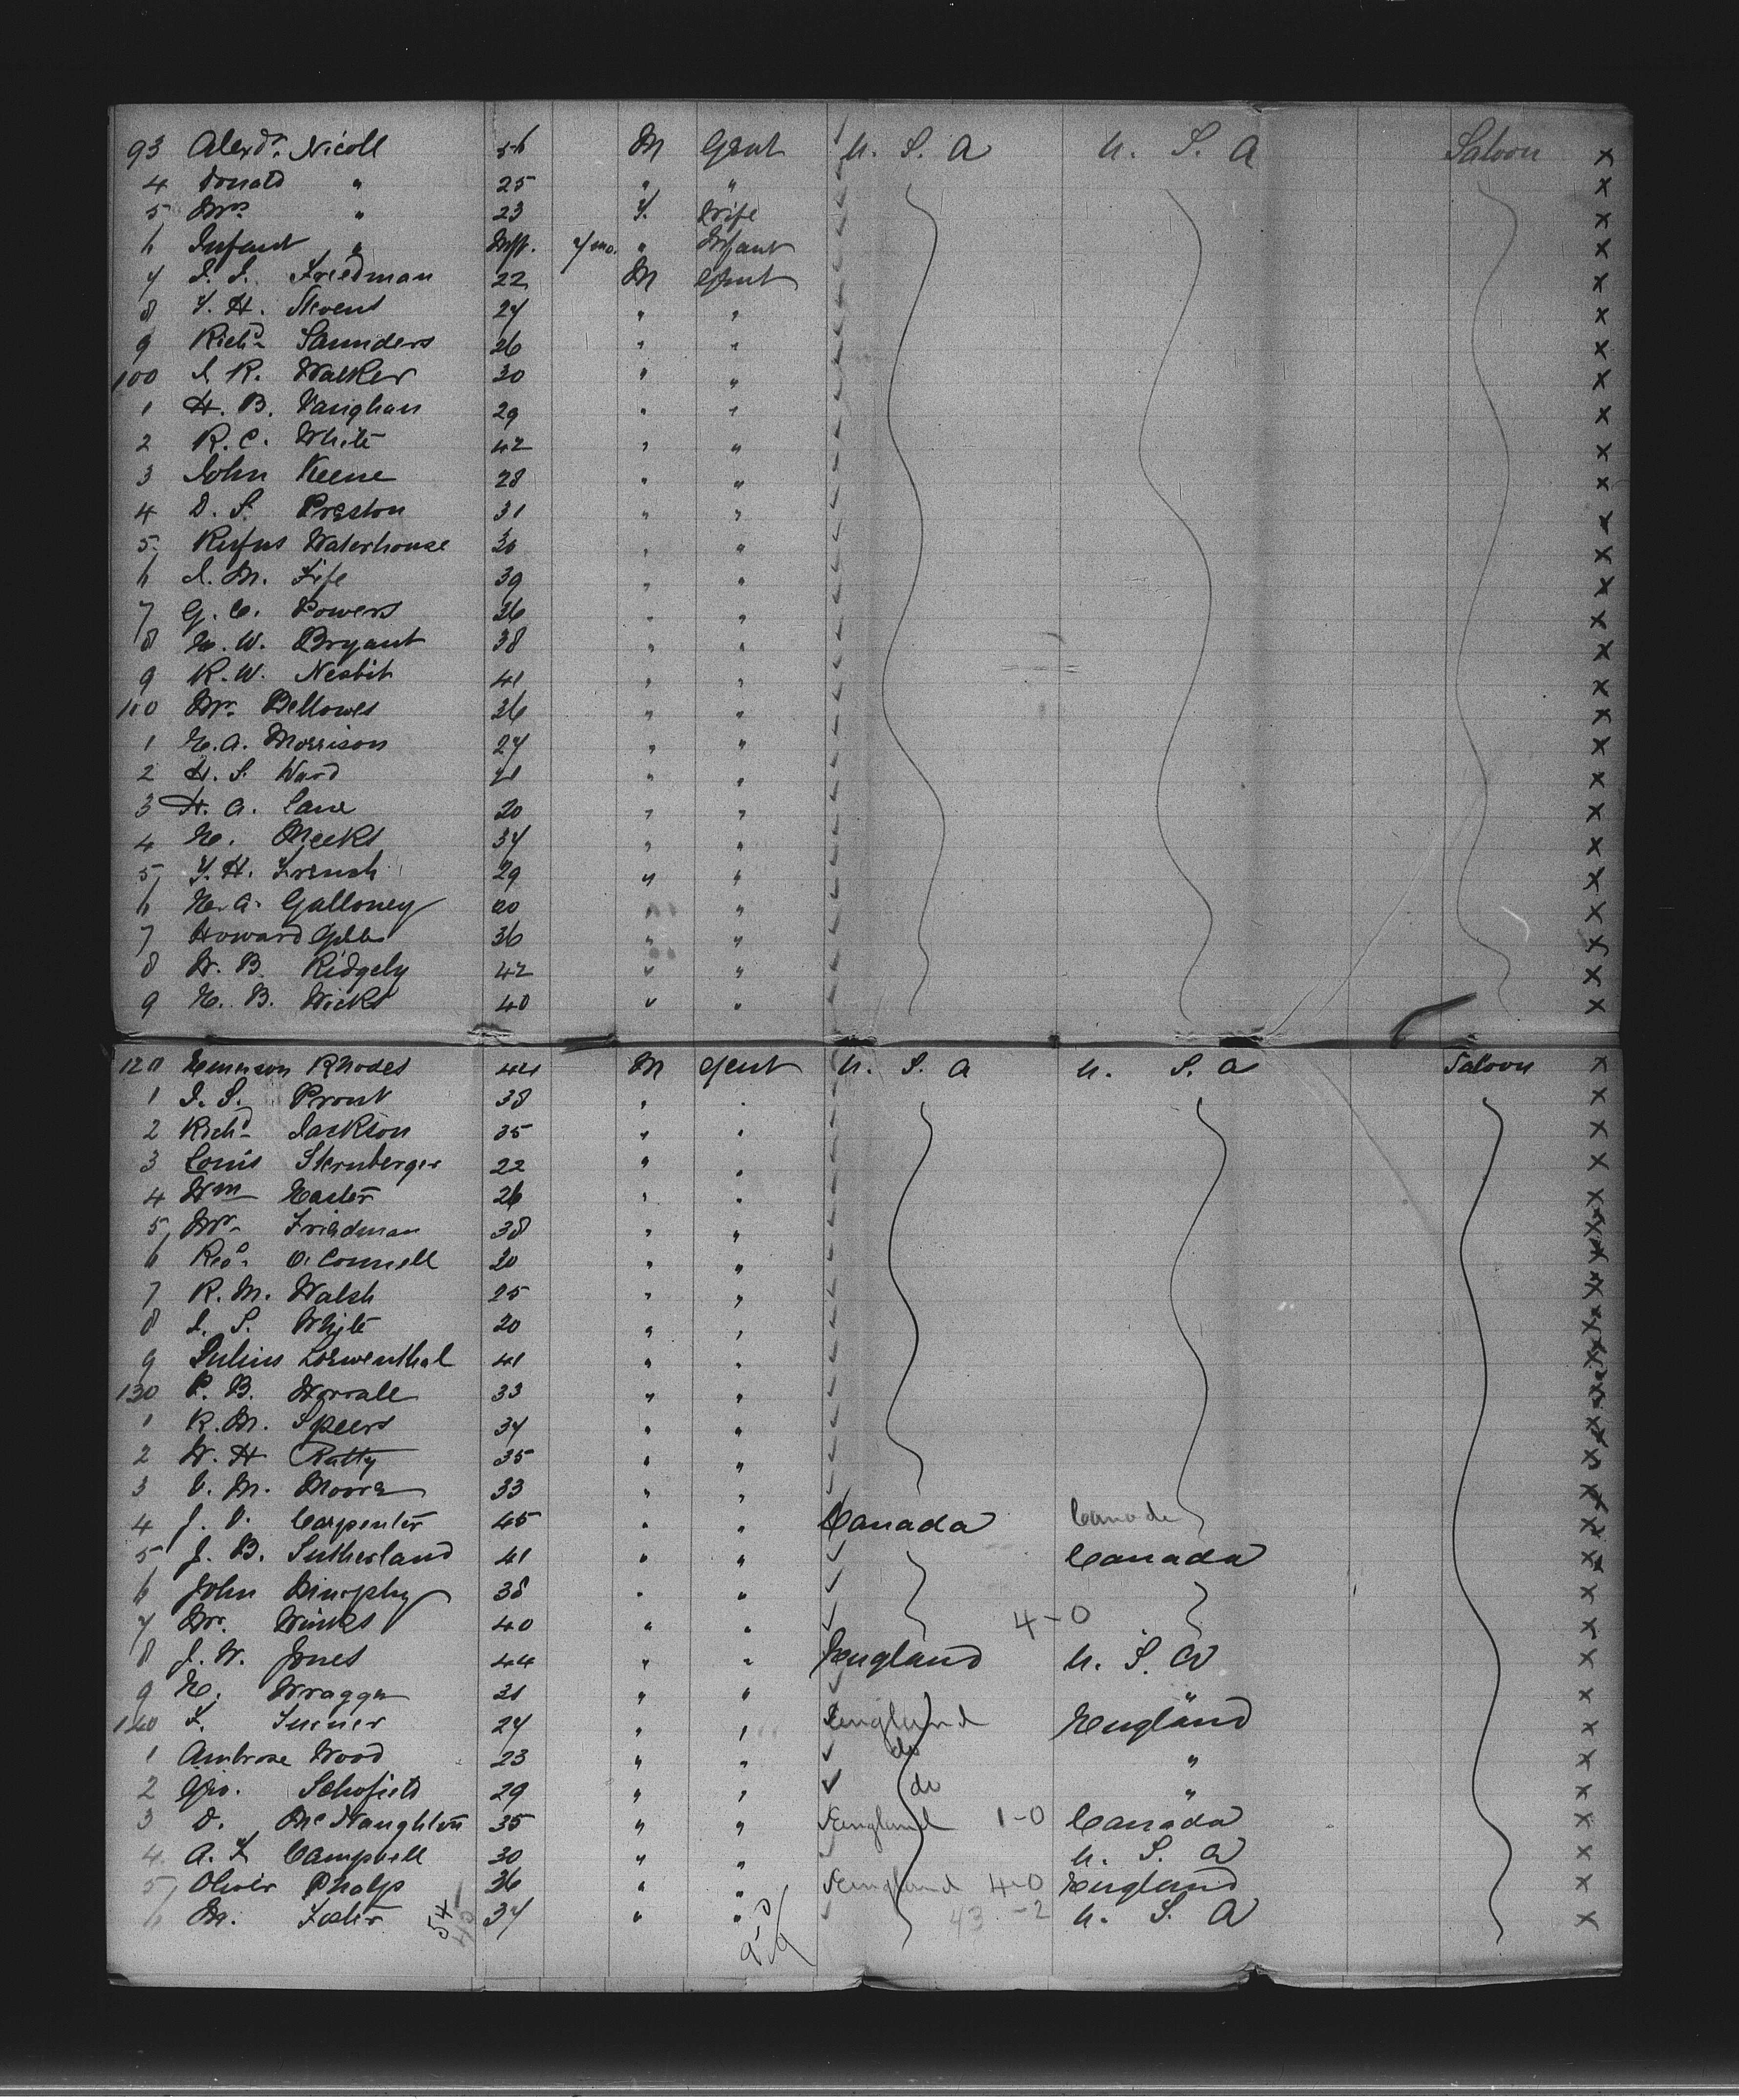 93 Alexdr. Nicoll 56 M Gent U. S. A U. S. A Saloon x
4 Donald " 25 " " x
5 Mrs. " 23 F. Wife x
6 Infant " Inft. 7 mo. " Infant x
7 I. I. Friedman 22 M Gent x
8 F. H. Stevens 27 " " x
9 Richd. Saunders 26 " " x
100 J. R. Walker 30 " " x
1 H. B. Vaughan 29 " " x
2 R. C. White 42 " " x
3 John Keene 28 " " x
4 D. S. Preston 31 " " x
5 Rufus Waterhouse 30 " " x
6 J. M. Fife 39 " " x
7 G. C. Powers 36 " " x
8 E. W. Bryant 38 " " x
9 R. W. Nesbit 41 " " x
110 Mr. Bellows 36 " " x
1 E. A. Morrison 27 " " x
2 H. S. Ward 21 " " x
3 H. A. Lane 20 " " x
4 E. Meeks 37 " " x
5 F. H. French 29 " " x
6 E. A. Galloney 20 " " x
7 Howard Gibbs 36 " " x
8 W. B. Ridgely 42 " " x
9 E. B. Wicks 40 " " x
120 Emerson Rhodes 44 M Gent U. S. A U. S. A Saloon x
1 I. S. Prout 38 " " x
2 Richd. Jackson 35 " " x
3 Louis Sternberger 22 " " x
4 Wm Easter 26 " " x
5 Mr. Friedman 38 " " x
6 O'Connell 30 " " x
7 R. M. Walsh 25 " " x
8 J. S. White 20 " " x
9 Julius Loewenthal 41 " " x
130 P. B. Worrall 33 " " x
1 R. M. Speers 37 " " x
2 W. H. Rutty 35 " " x
3 C. M. Moore 33 " " x
4 J. D. Carpenter 45 " " Canada Canada x
5 J. B. Sutherland 41 " " Canada x
6 John Murphy 38 " " x
7 Mr. Winks 40 " " 4-0 x
8 J. W. Jones 44 " " England U. S. A x
9 E. Wragge 31 " " " x
140 F. Turner 27 " " England England x
1 Ambrose Wood 23 " " do " x
2 Geo. Schofield 29 " " do " x
3 D. McNaughton 35 " " England 1-0 Canada x
4 A. F. Campbell 30 " " U. S. A x
5 Oliver Phelps 36 " " England 4-0 England x
6 M. Foster 54 37 " " 43-2 U. S. A x